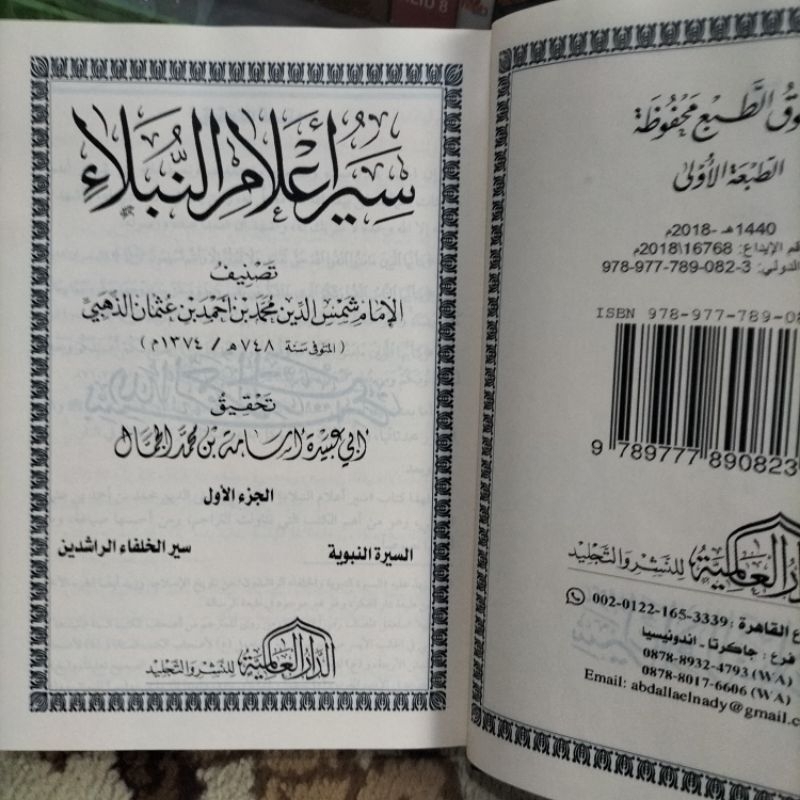 سِيَرُ أَعْلَامِ النُّبَلَاءِ
تَصْنِيفُ
الإِمَامِ شَمْسِ الدِّينِ مُحَمَّدِ بْنِ أَحْمَدَ بْنِ عُثْمَانَ الذَّهَبِيِّ
(المتوفى سَنَة ٧٤٨ هـ / ١٣٧٤ م)
تَحْقِيقُ
أبي عبيدة أسامة بن محمد الجمال
الجزء الأول
السيرة النبوية سير الخلفاء الراشدين
الدَّارُ العَالَمِيَّة لِلنَّشْرِ وَالتَّجْلِيد
الطَّبع مَحْفُوظَة
الطبعَة الأُوْلى
1440هـ -2018م
الإيداع: 16768\2018م
الدولي: 3-082-789-977-978
ISBN 978-977-789-0
9 789777 890823
العَالَمِيَّة لِلنَّشْرِ وَالتَّجْلِيد
القاهرة: 002-0122-165-3339
فرع: جاكرتا - اندونيسيا
0878-8932-4793 (WA)
0878-8017-6606 (WA)
Email: abdallaelnady@gmail.c